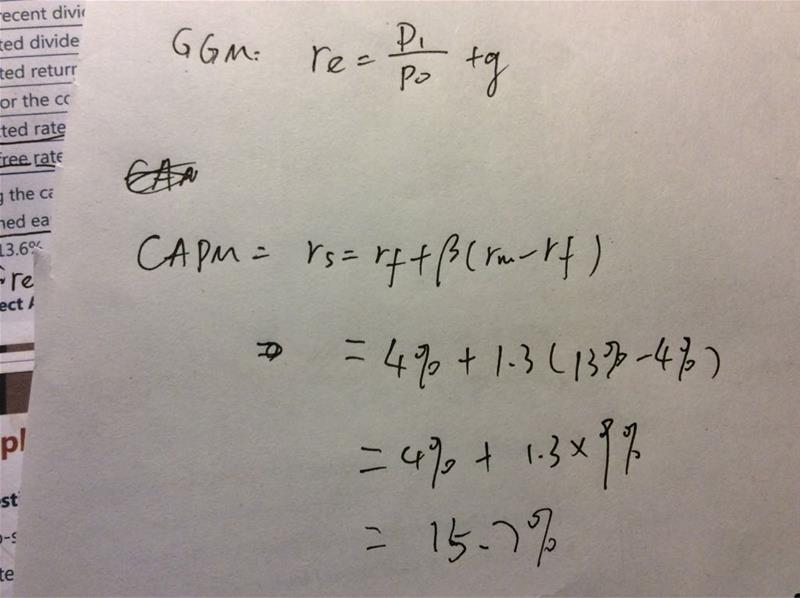 recent divid
ted divide
ted return
or the co
ted rate
free rate
g the ca
ned ea
13.6%
re
ect A
pl
st
o-s
te
GGM: re = D1/P0 + g
CAPM = rs = rf + β(rm - rf)
= 4% + 1.3(13% - 4%)
= 4% + 1.3 × 9%
= 15.7%